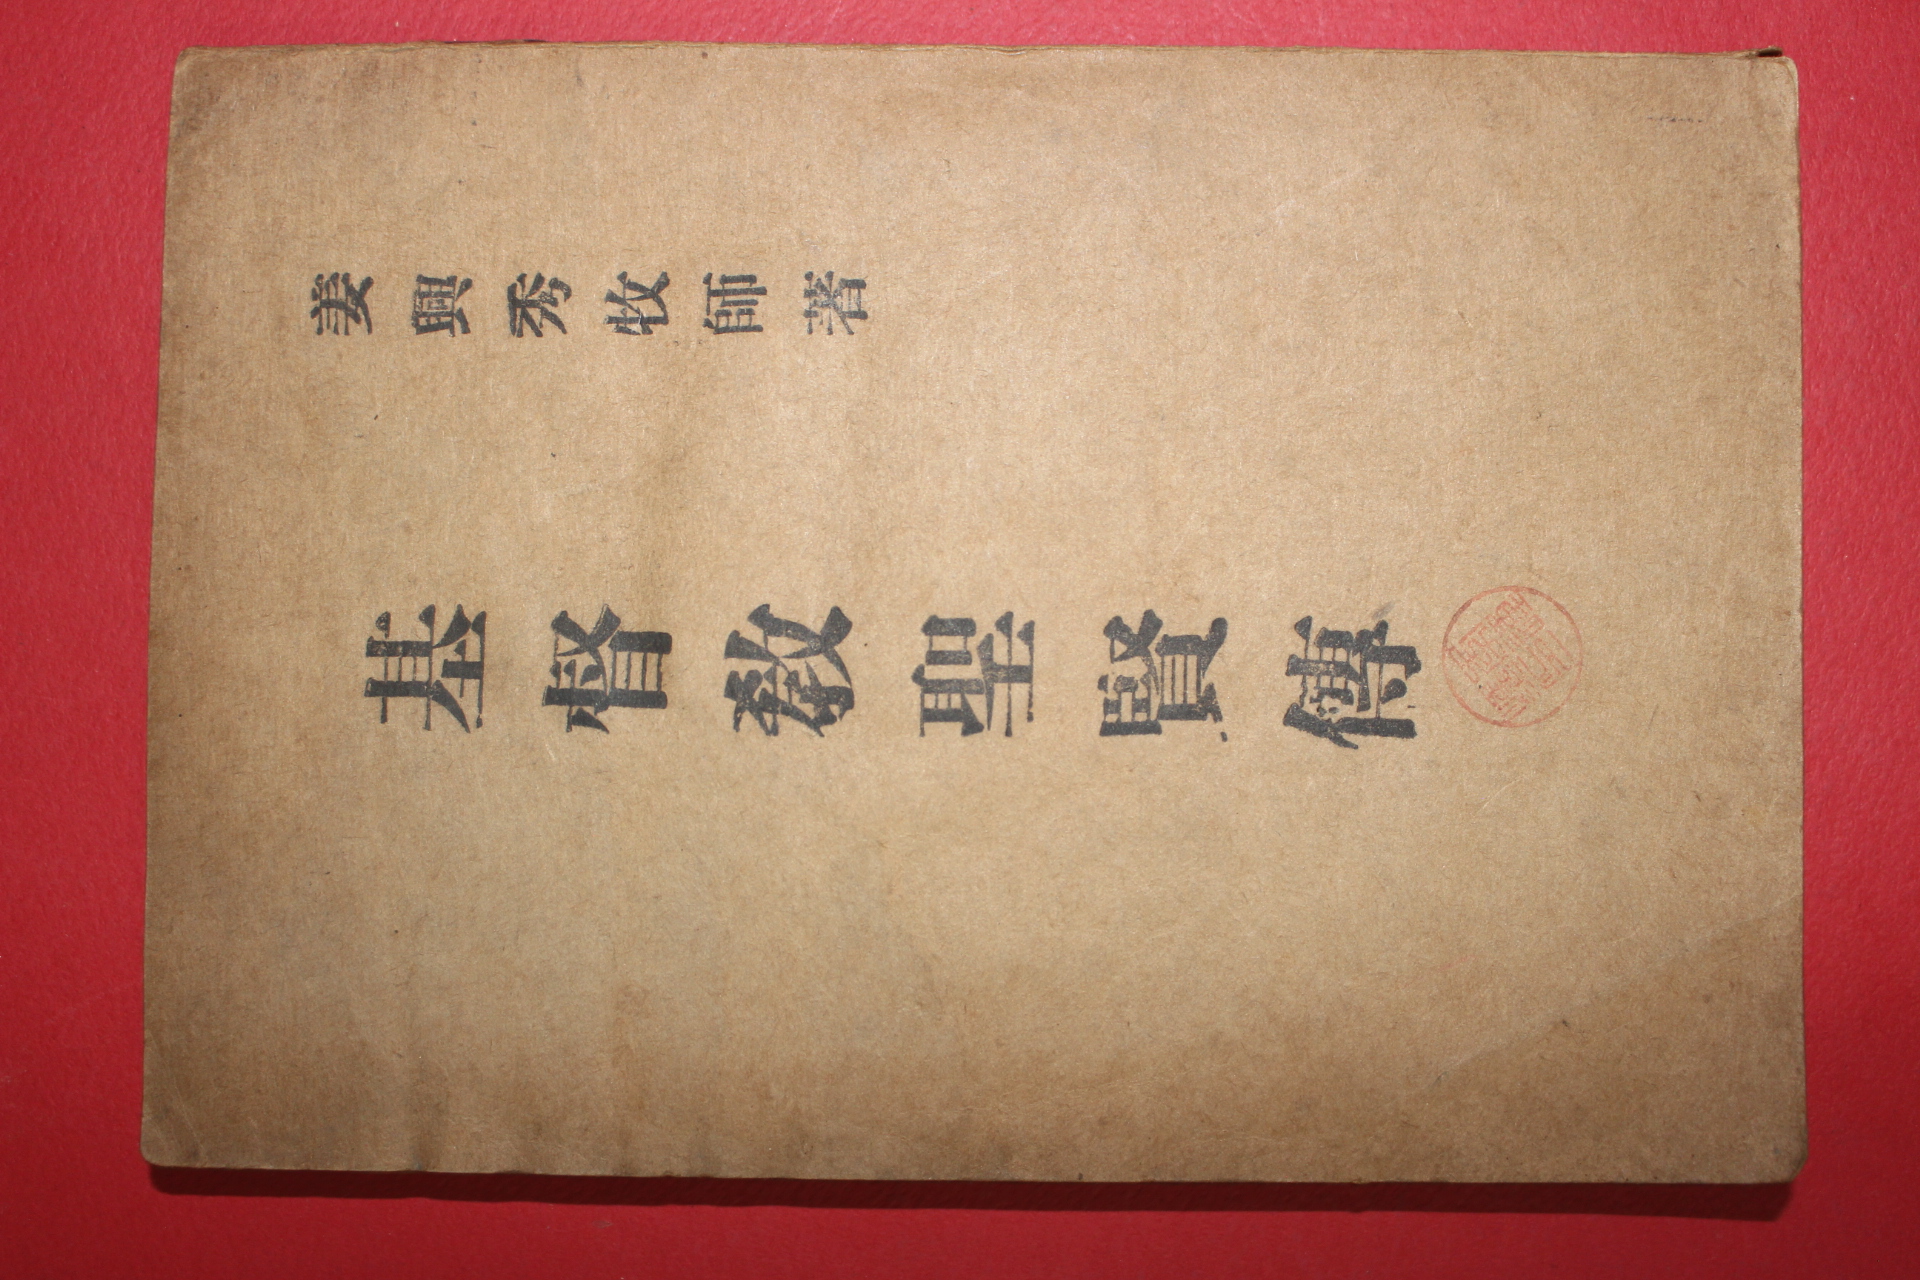 姜興秀牧師著
基督教聖賢傳